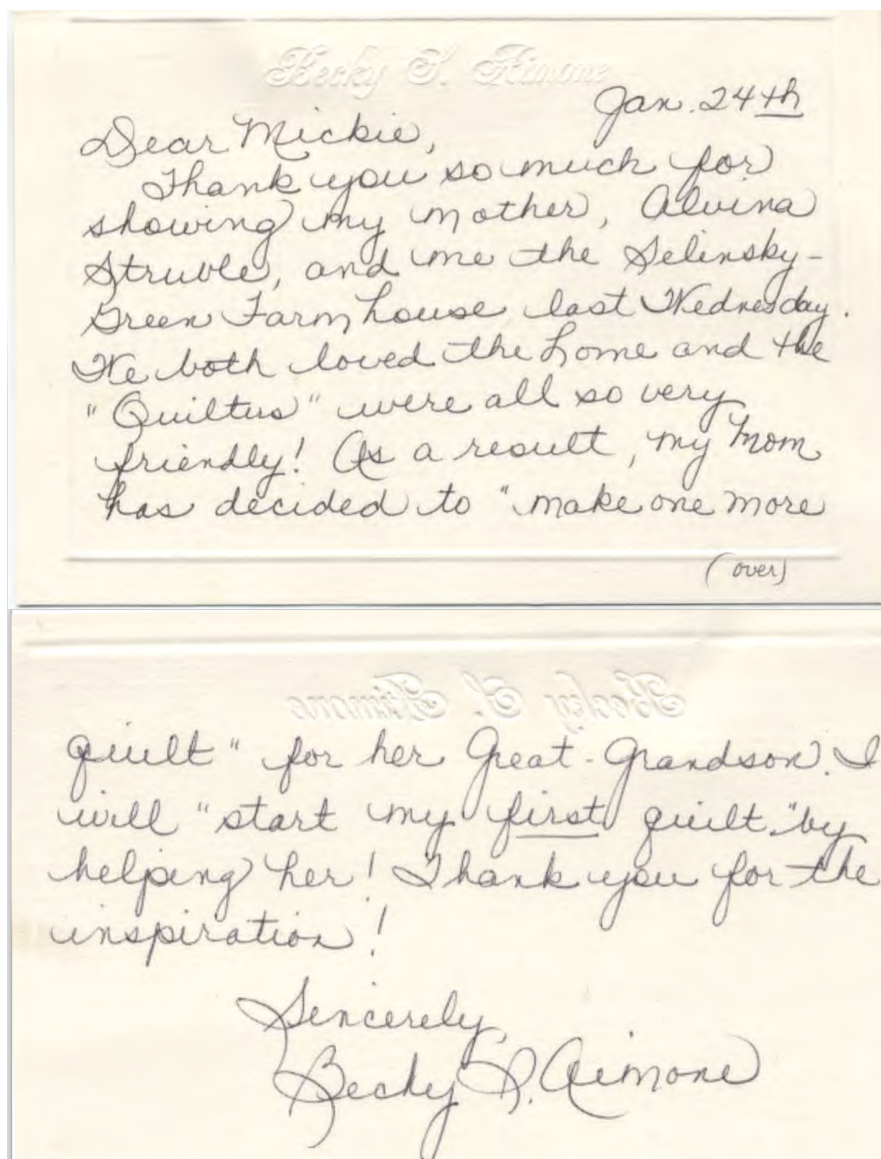 Becky S. Aimone
Jan. 24th
Dear Mickie,
Thank you so much for
showing my mother, Alvina
Struble, and me the Selinsky-
Green Farmhouse last Wednesday.
We both loved the home and the
"Quilters" were all so very
friendly! As a result, my Mom
has decided to "make one more
(over)
Becky S. Aimone
quilt" for her Great-Grandson. I
will "start my first quilt" by
helping her! Thank you for the
inspiration!
Sincerely,
Becky S. Aimone